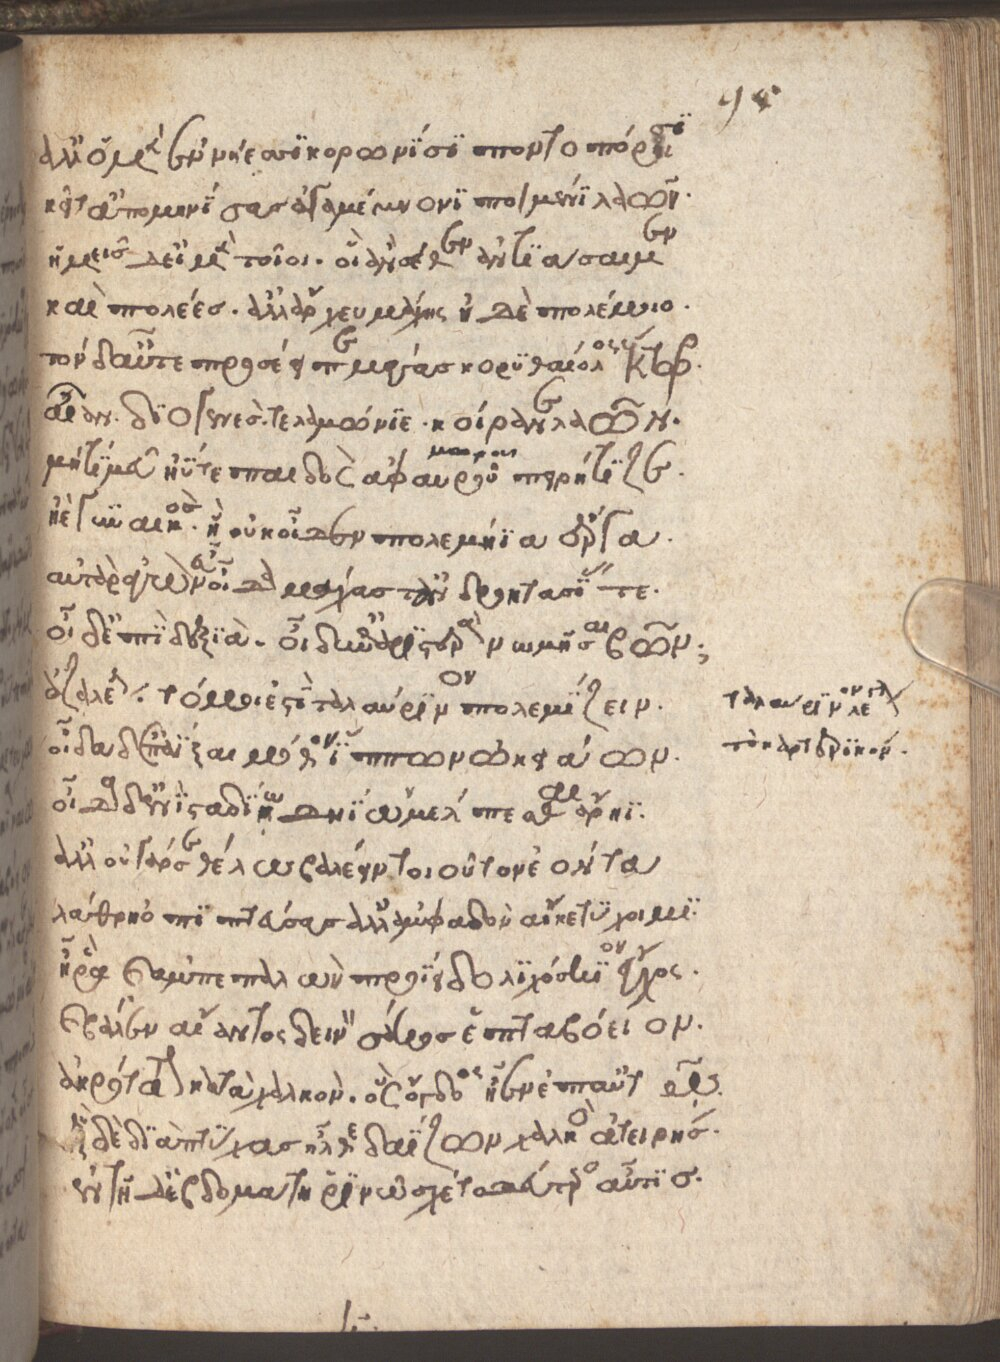 ἀλλ' ὃ μὲν ἐν νήεσσι κορωνίσι ποντοπόροισι
κεῖτ' ἀπομηνίσας ἀγαμέμνονι ποιμένι λαῶν.
ἡμεῖς δ' εἰμὲν τοῖοι. οἳ ἂν σέθεν ἀντιάσαιμεν
καὶ πολέες. ἀλλ' ἄρχευ μάχης ἠδὲ πολέμοιο.
τὸν δ' αὖτε προσέειπε μέγας κορυθαίολος ἕκτωρ.
αἶαν. διογενὲς. τελαμώνιε. κοίρανε λαῶν.
μήτι μευ ἠΰτε παιδὸς ἀφαυροῦ πειρήτιζε.
ἠὲ γυναικὸς. ἣ οὐκ οἶδεν πολεμήϊα ἔργα.
αὐτὰρ ἐγὼν εὖ οἶδα μάχας τ' ἀνδροκτασίας τε.
οἶδ' ἐπὶ δεξιὰ. οἶδ' ἐπ' ἀριστερὰ νωμῆσαι βῶν;
ἀζαλέην. τό μοι ἐστὶ ταλαύρινον πολεμίζειν.
ταλαύρινον λέγει
τὸ καρτερικόν.
οἶδα δ' ἐπαΐξαι μόθον ἵππων ὠκειάων.
οἶδα δ' ἐνὶ σταδίη δηΐω μέλπεσθαι ἄρηϊ.
ἀλλ' οὐ γάρ σ' ἐθέλω βαλέειν τοιοῦτον ἐόντα
λάθρη ὀπιπτεύσας ἀλλ' ἀμφαδὸν αἴκε τύχοιμι.
ἦ ῥὰ καὶ ἀμπεπαλὼν προΐει δολιχόσκιον ἔγχος.
καὶ βάλεν αἴαντος δεινὸν σάκος ἑπταβόειον.
ἀκρότατον κατὰ χαλκὸν. ὃς ὄγδοος ἦεν ἐπ' αὐτῶ.
ἓξ δὲ διὰ πτύχας ἦλθε δαΐζων χαλκὸς ἀτειρής.
ἐν τῆ δ' ἑβδομάτη ῥινῶ σχέτο δεύτερος αὖτις.